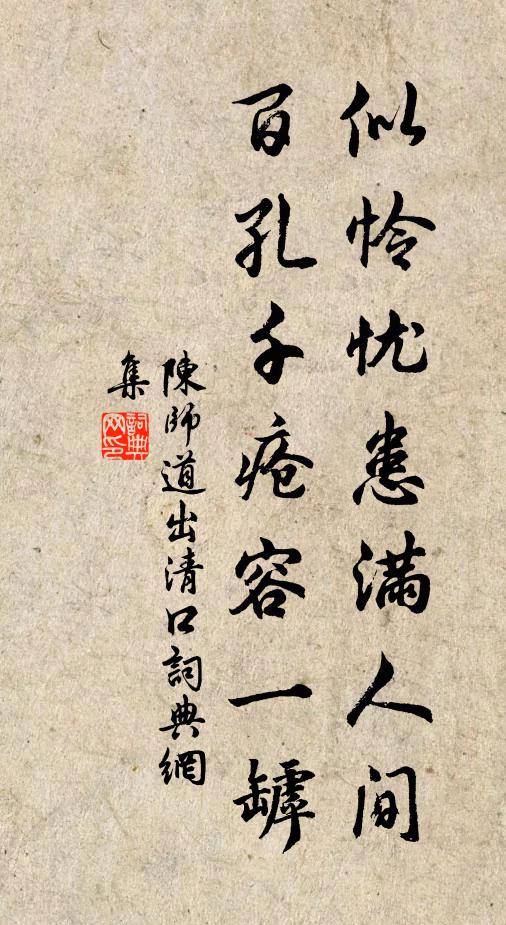 似怜忧患满人间
百孔千疮容一罅
陳師道出清口詞典網
集
詞典网印